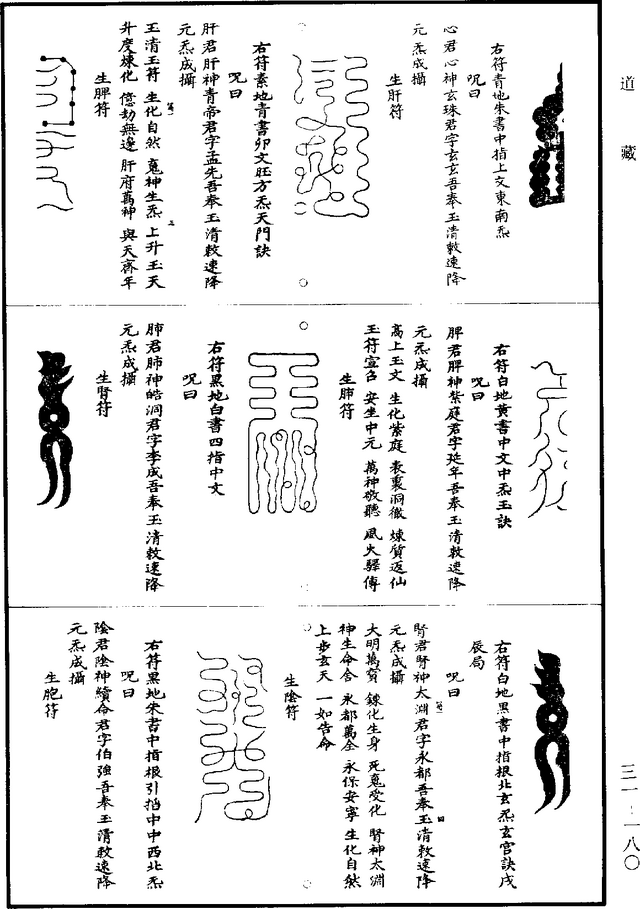 道藏
右符青地朱書中指上文東南炁
呪曰
心君心神玄珠君字玄玄吾奉玉清敕速降
元炁成攝
生肝符
右符素地青書卯文旺方炁天門訣
呪曰
肝君肝神青帝君字孟先吾奉玉清敕速降
元炁成攝
玉清玉符 生化自然 䰟神生炁 上升玉天
升度煉化 億劫無邊 肝府萬神 與天齊年
生脾符
右符白地黃書中文中炁玉訣
呪曰
脾君脾神紫庭君字延年吾奉玉清敕速降
元炁成攝
高上玉文 生化紫庭 表裏洞徹 煉質返仙
玉符宣告 安坐中元 萬神敬聽 風火驛傳
生肺符
右符黑地白書四指中文
呪曰
肺君肺神皓洞君字李成吾奉玉清敕速降
元炁成攝
生腎符
右符白地黑書中指根北玄炁玄宮訣戌
辰局
呪曰
腎君腎神太淵君字永都吾奉玉清敕速降
元炁成攝
大明萬寶 鍊化生身 死䰟受化 腎神太淵
神生命合 永都萬全 永保安寧 生化自然
上步玄天 一如告命
生陰符
右符黑地朱書中指根引掐中中西北炁
呪曰
陰君陰神續命君字伯強吾奉玉清敕速降
元炁成攝
生胞符
三一-一八〇